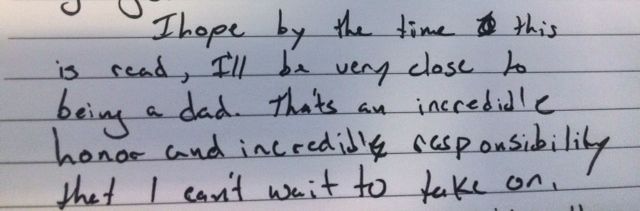 I hope by the time this
is read, I'll be very close to
being a dad. That's an incredible
honor and incredible responsibility
that I can't wait to take on.